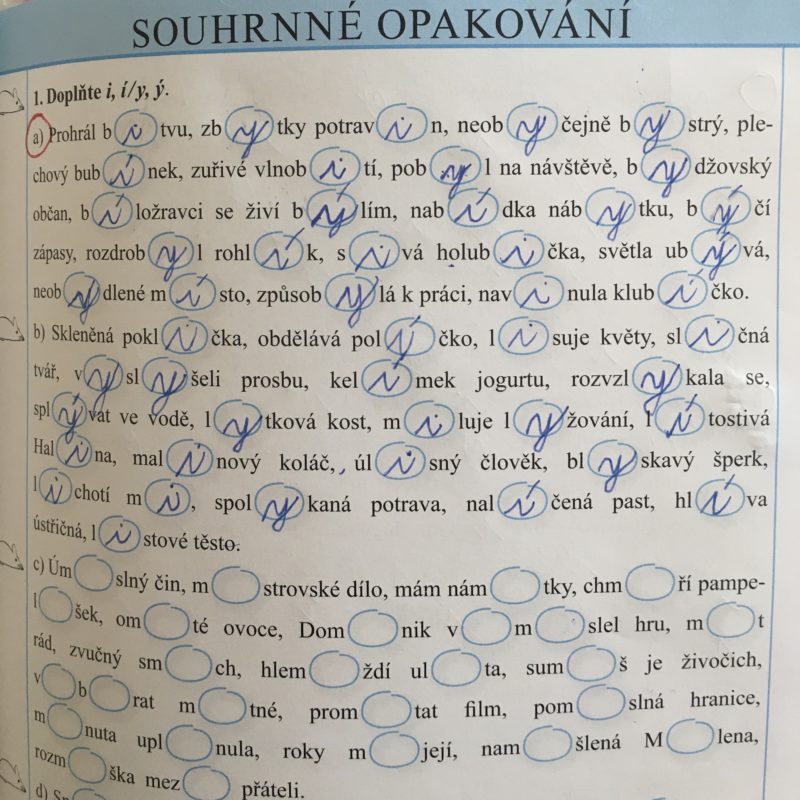 SOUHRNNÉ OPAKOVÁNÍ
1. Doplňte i, í/y, ý.
a) Prohrál bitvu, zbytky potravin, neobyčejně bystrý, ple-
chový bubínek, zuřivé vlnobití, pobyl na návštěvě, bydžovský
občan, bíložravci se živí býlím, nabídka nábytku, býčí
zápasy, rozdrobyl rohlík, sivá holubička, světla ubývá,
neobydlené místo, způsobylá k práci, navinula klubíčko.
b) Skleněná poklička, obdělává polýčko, lisuje květy, sličná
tvář, vyslyšeli prosbu, kelímek jogurtu, rozvzlykala se,
splývat ve vodě, lytková kost, miluje lyžování, lítostivá
Halina, malinový koláč, úlisný člověk, blyskavý šperk,
lichotí mi, spolykaná potrava, nalíčená past, hlíva
ústřičná, listové těsto.
c) Úm slný čin, m strovské dílo, mám nám tky, chm ří pampe-
l šek, om té ovoce, Dom nik v m slel hru, m t
rád, zvučný sm ch, hlem ždí ul ta, sum š je živočich,
v b rat m tné, prom tat film, pom slná hranice,
m nuta upl nula, roky m její, nam šlená M lena,
rozm ška mez přáteli.
d)